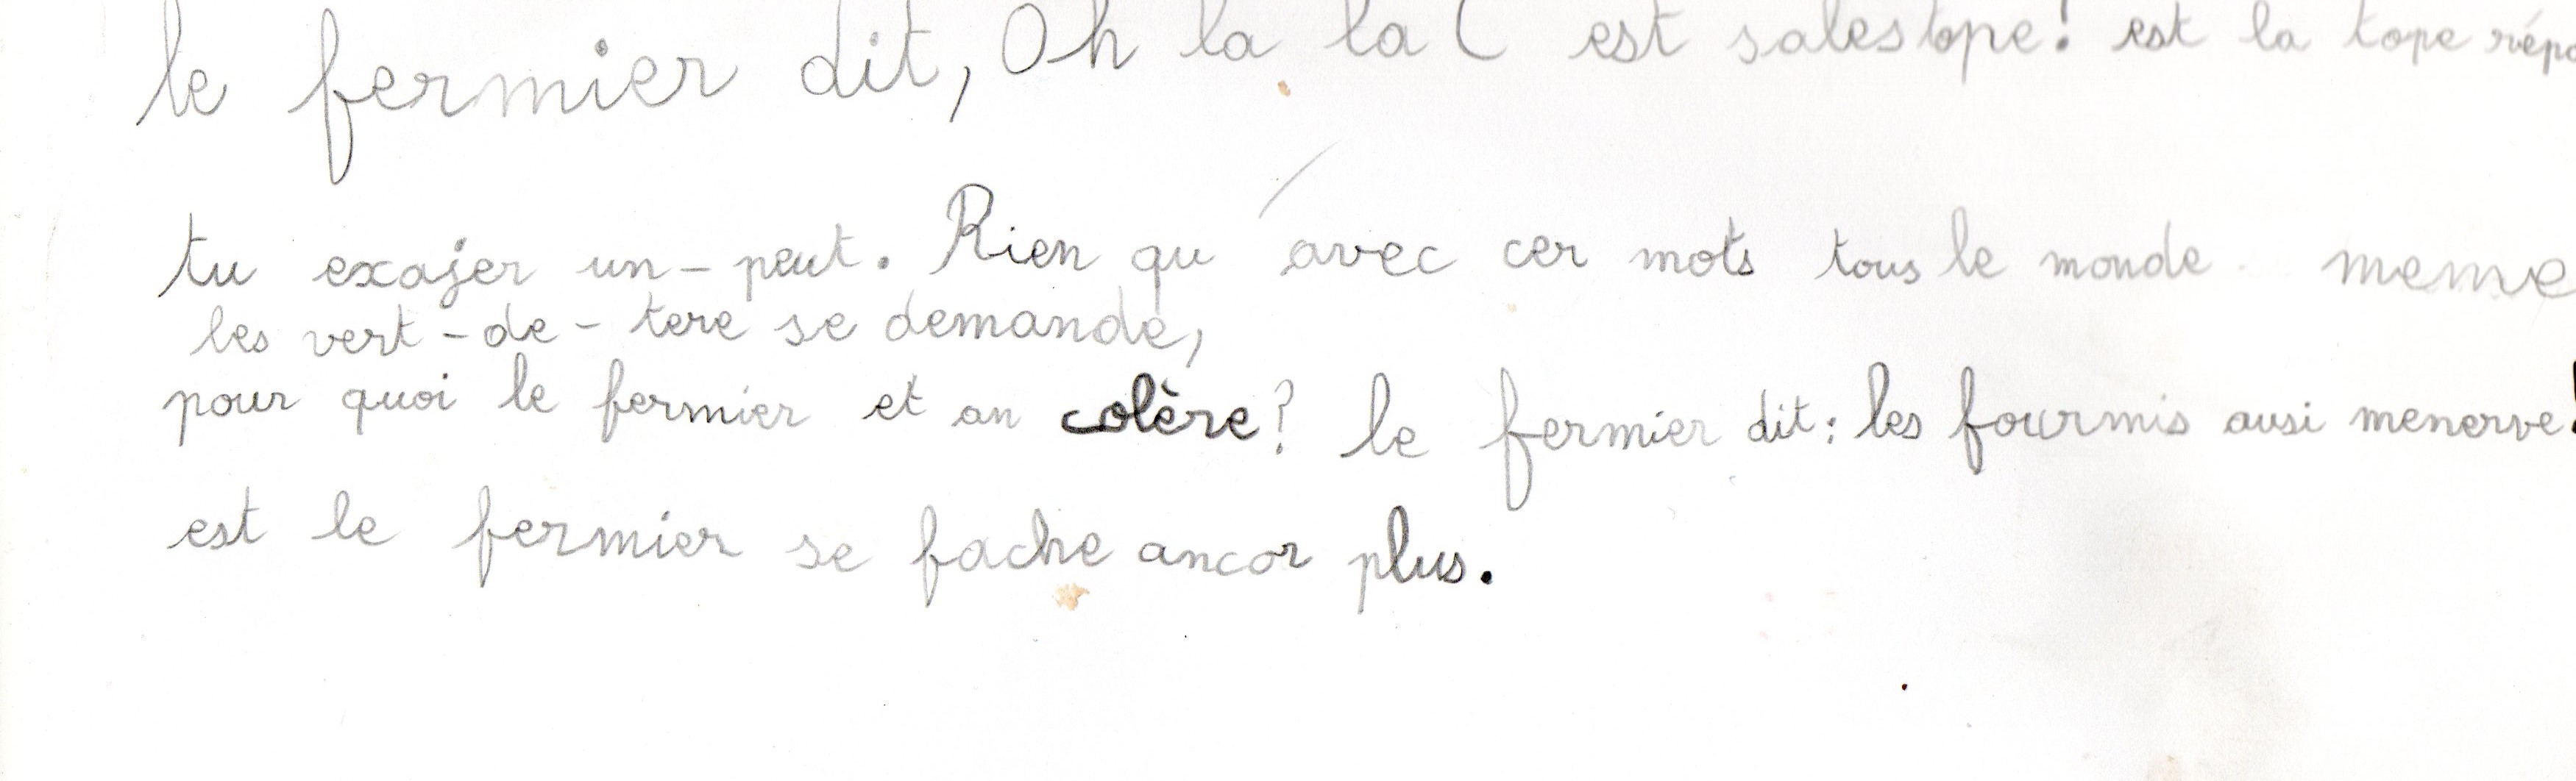 le fermier dit, Oh la la C est salestope! est la tope répo
tu exajer un-peut. Rien qu avec cer mots tous le monde meme
les vert-de-tere se demande,
pour quoi le fermier et an colère? le fermier dit: les fourmis ausi menerve!
est le fermier se fache ancor plus.